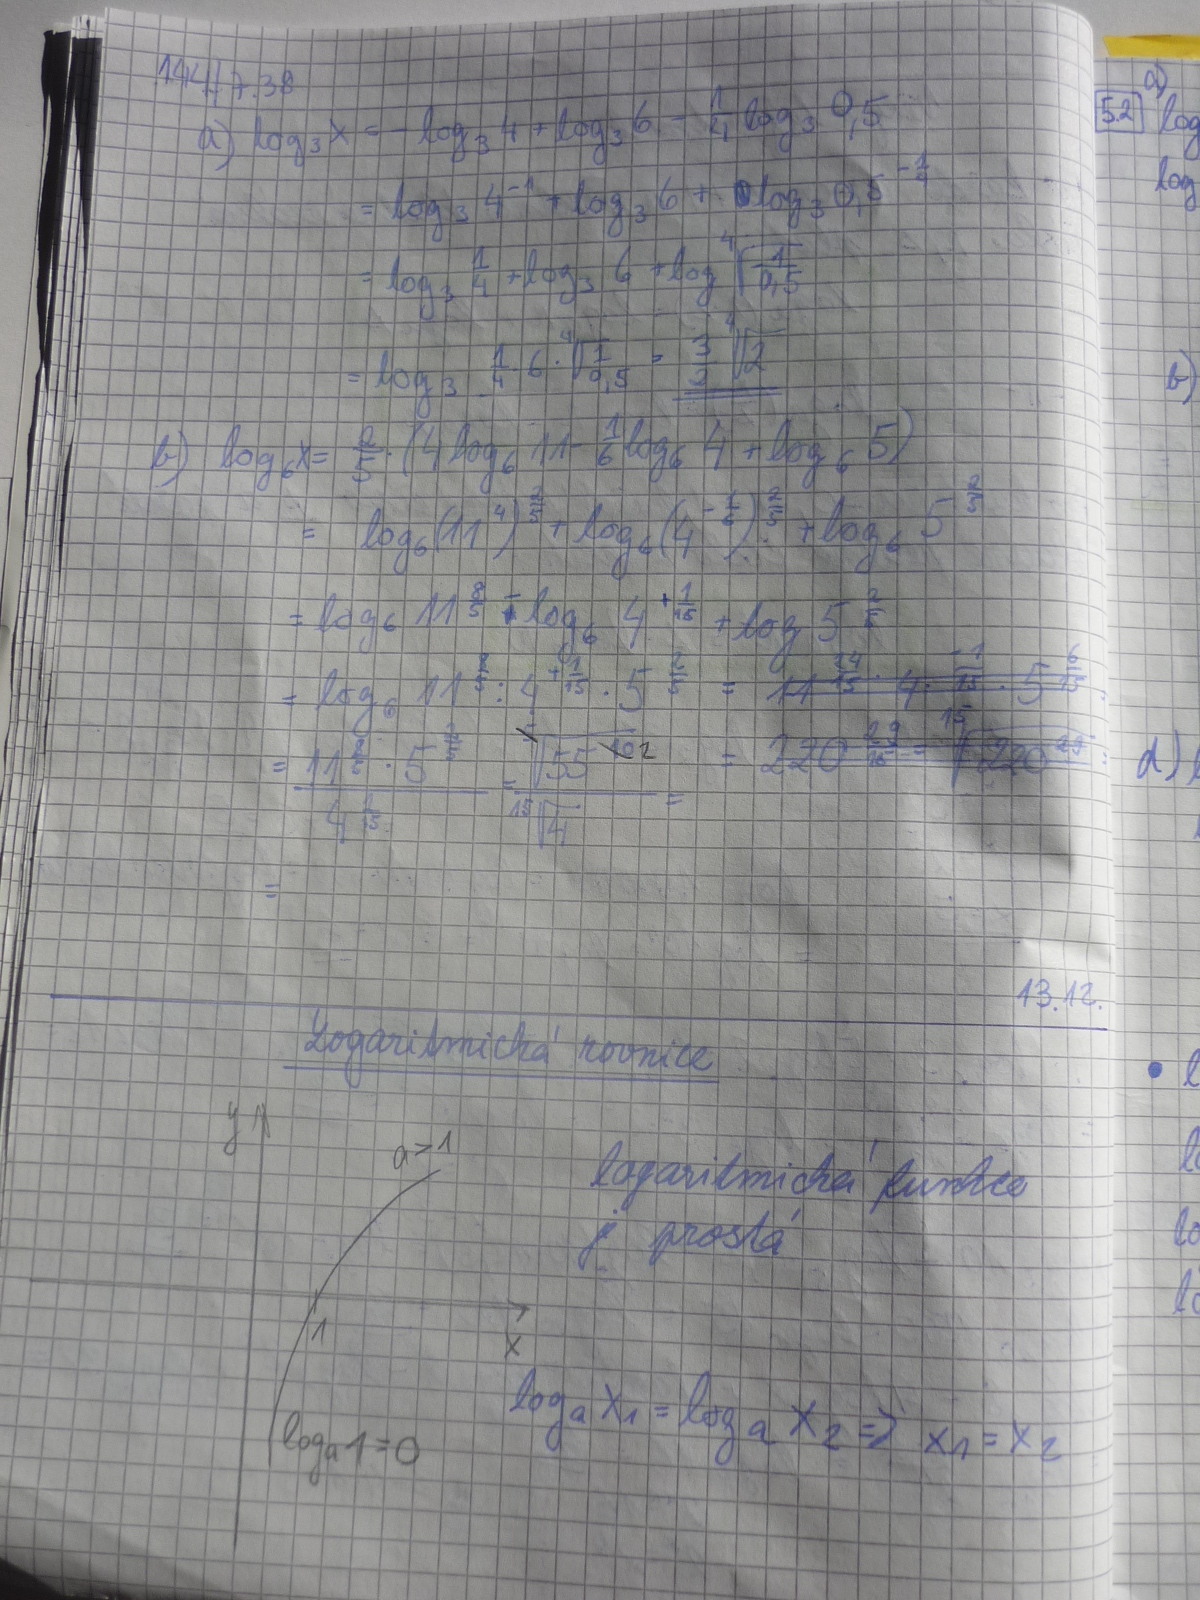 144/7.38
a) log₃x = -log₃4 + log₃6 - 1/4 log₃ 0,5
= log₃ 4⁻¹ + log₃ 6 + log₃ 0,5^(-1/4)
= log₃ 1/4 + log₃ 6 + log ⁴√(1/0,5)
= log₃ 1/4 · 6 · ⁴√(1/0,5) = 3/2 ⁴√2
b) log₆x = 2/5 · (4 log₆ 11 - 1/6 log₆ 4 + log₆ 5)
= log₆(11⁴)^(2/5) + log₆(4^(-1/6))^(2/5) + log₆ 5^(2/5)
= log₆ 11^(8/5) - log₆ 4^(+1/15) + log 5^(2/5)
= log₆ 11^(8/5) : 4^(+1/15) · 5^(2/5) = 11^(24/15) · 4^(-1/15) · 5^(6/15)
= 220^(29/15) = ¹⁵√(220²⁹) =
=
13.12.
Logaritmická rovnice
y
a>1
logaritmická funkce
j prostá
1
x
logₐ x₁ = logₐ x₂ => x₁ = x₂
logₐ1=0
5.2
a)
log
log
b)
d)